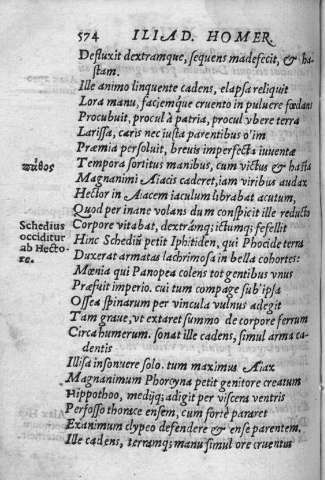 574 ILIAD. HOMER
Defluxit dextramque, sequens madefecit, & ha-
stam.
Ille animo linquente cadens, elapsa reliquit
Lora manu, faciemque cruento in puluere fœdans
Procubuit, procul à patria, procul vbere terra
Larissa, caris nec iusta parentibus o'im
Præmia persoluit, breuis imperfecta iuuentæ
πάθος
Tempora sortitus manibus, cum victus & hasta
Magnanimi Aiacis caderet, iam viribus audax
Hector in Aiacem iaculum librabat acutum,
Quod per inane volans dum conspicit ille reducto
Schedius
occiditur
ab Hecto-
re.
Corpore vitabat, dextrámq; ictumq; fefellit
Hinc Schedíũ petit Iphitiden, qui Phocide terra
Duxerat armatas lachrimosa in bella cohortes:
Mœnia qui Panopea colens tot gentibus vnus
Præfuit imperio. cui tum compage sub ipsa
Ossea spinarum per vincula vulnus adegit
Tam graue, vt extaret summo de corpore ferrum
Circa humerum. sonat ille cadens, simul arma ca-
dentis
Illisa insonuere solo. tum maximus Aiax
Magnanimum Phorcyna petit genitore creatum
Hippothoo, medijq; adigit per viscera ventris
Perfosso thorace ensem, cum forte pararet
Exanimum clypeo defendere & ense parentem.
Ille cadens, terramq; manu simul ore cruentus